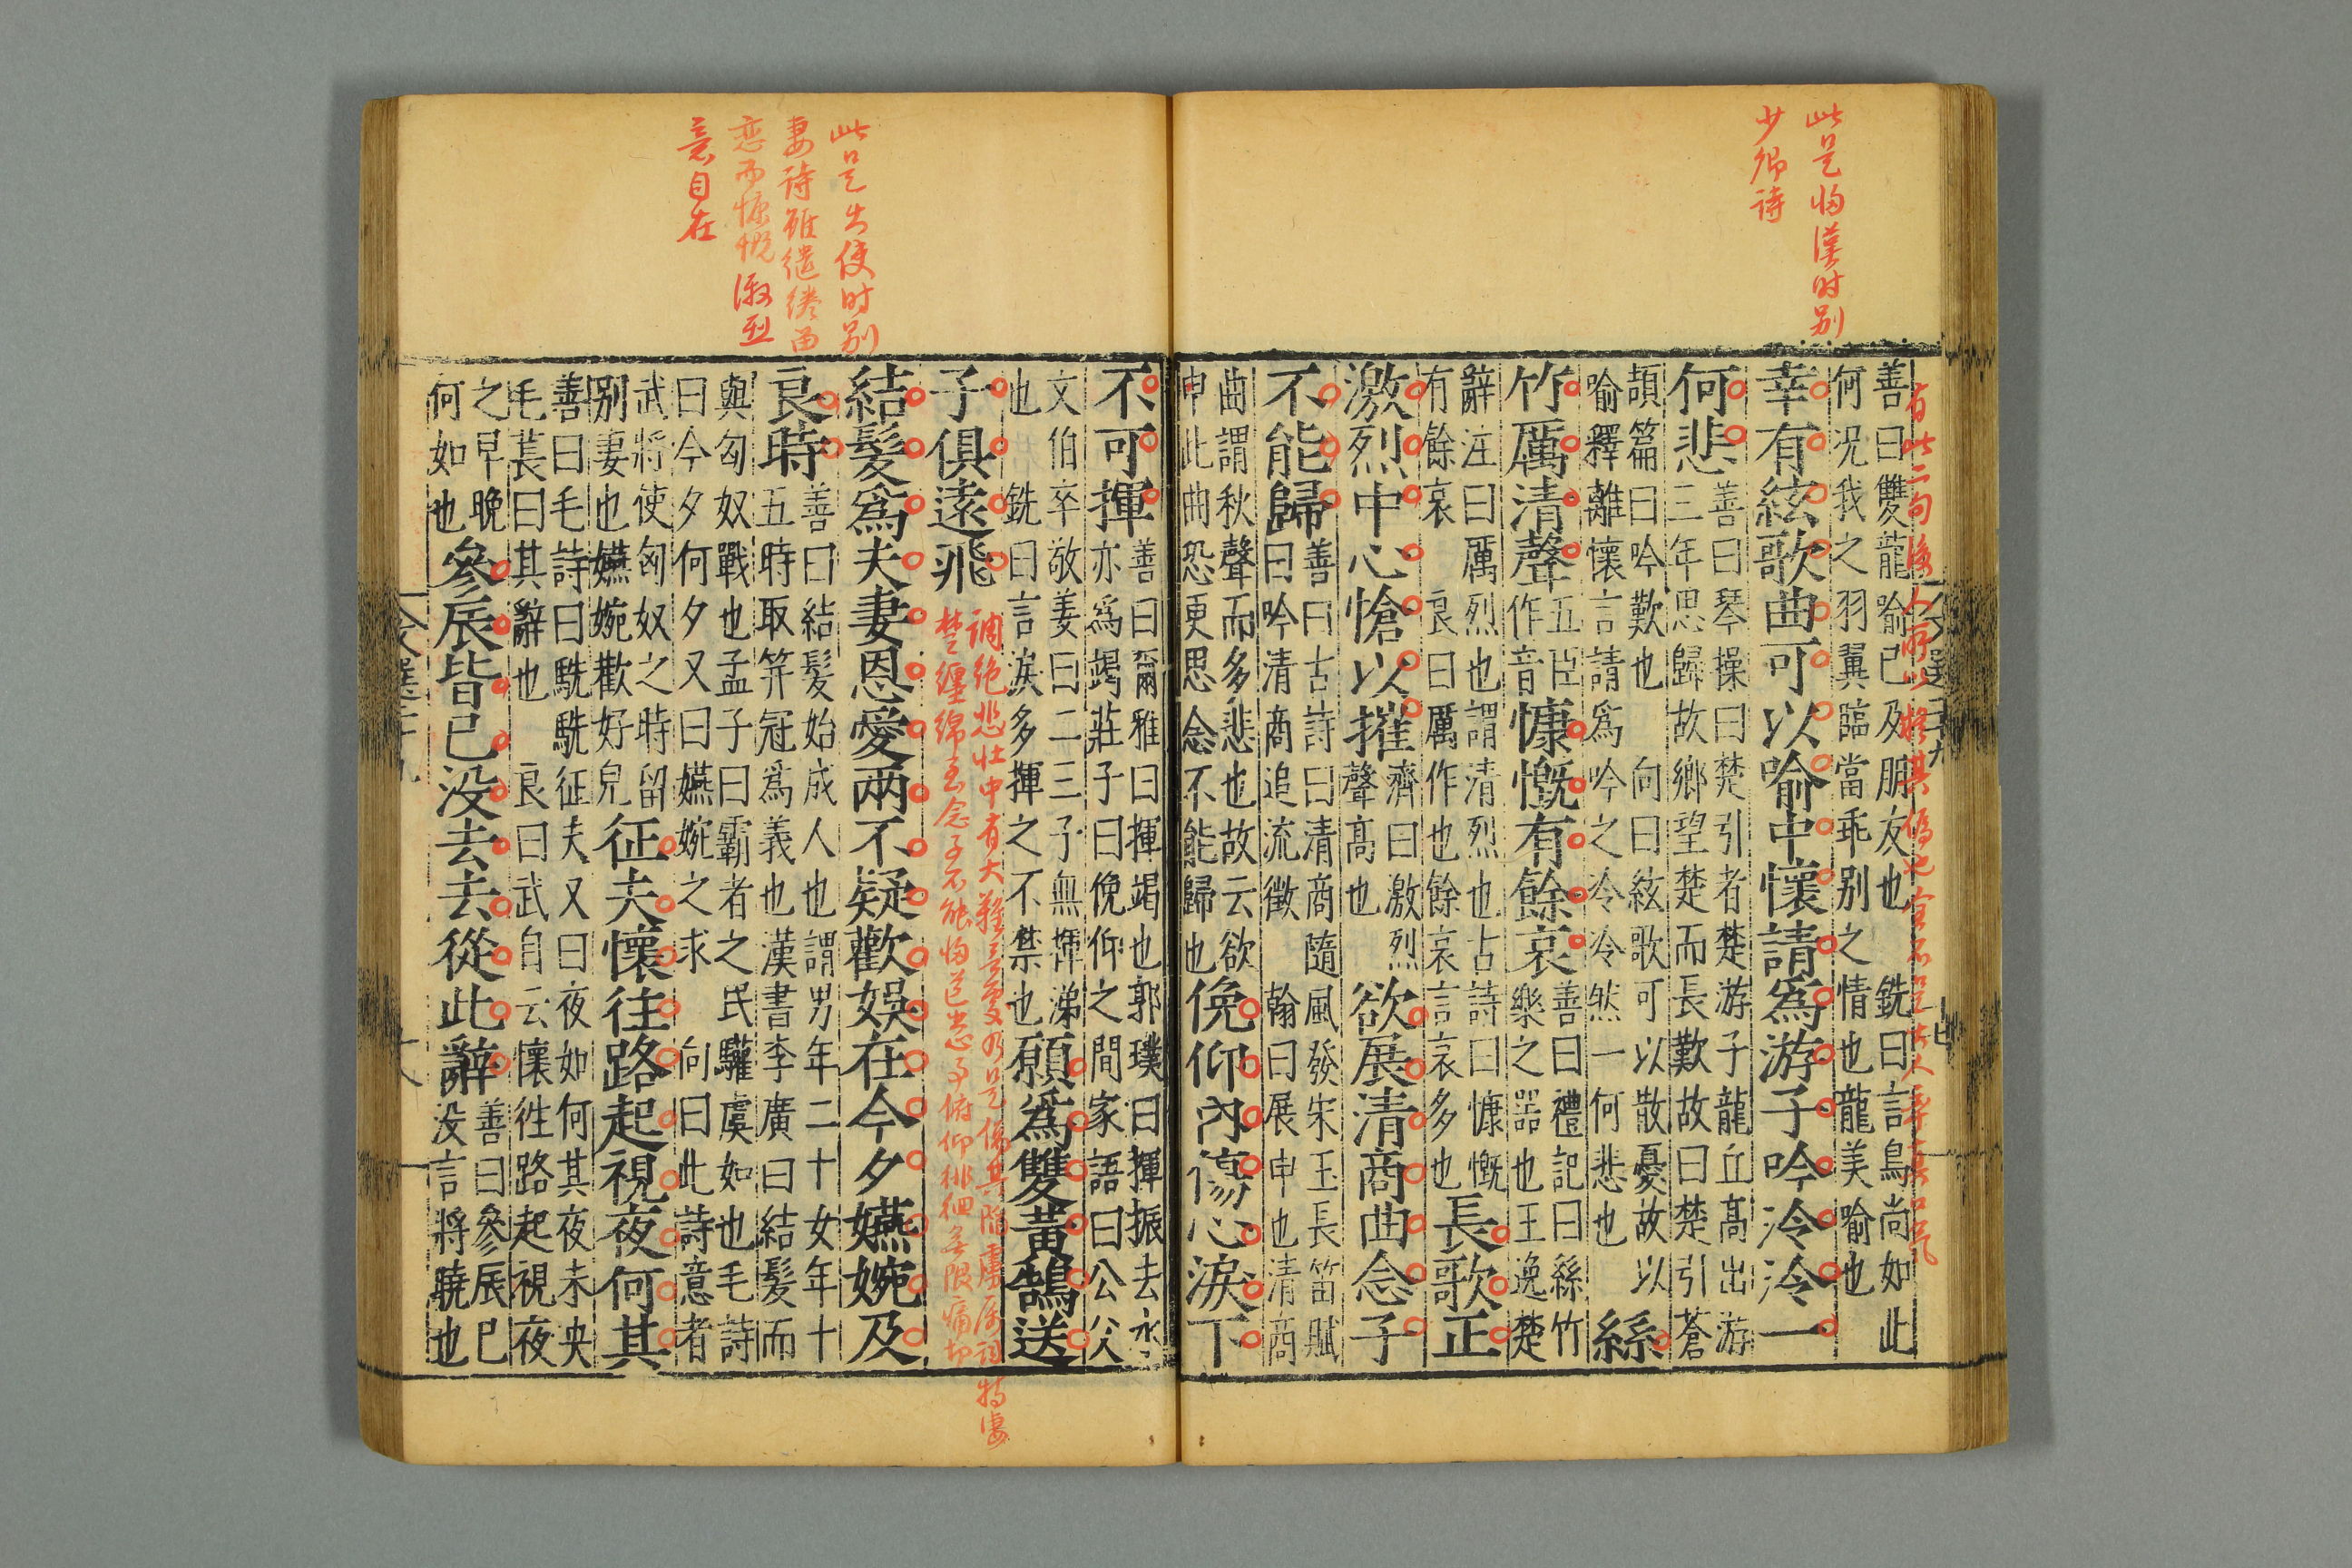 此是歸漢時別
少卿詩
善曰雙龍喻己及朋友也　銑曰言鳥尚如此
何況我之羽翼臨當乖別之情也龍美喻也
幸有絃歌曲可以喻中懷請為游子吟泠泠一
何悲
善曰琴操曰楚引者楚游子龍丘高出游
三年思歸故鄉望楚而長歎故曰楚引蒼
頡篇曰吟歎也　向曰絃歌可以散憂故以
喻釋離懷言請爲吟之泠泠然一何悲也
絲
竹厲清聲
五臣
作音
慷慨有餘哀
善曰禮記曰絲竹
樂之器也王逸楚
辭注曰厲烈也謂清烈也古詩曰慷慨
有餘哀　良曰厲作也餘哀言哀多也
長歌正
激烈中心愴以摧
濟曰激烈
聲高也
欲展清商曲念子
不能歸
善曰古詩曰清商隨風發宋玉長笛賦
曰吟清商追流徵　翰曰展申也清商
曲謂秋聲而多悲也故云欲
申此曲恐更思念不能歸也
俛仰內傷心淚下
不可揮
善曰爾雅曰揮竭也郭璞曰揮振去水
亦爲竭莊子曰俛仰之間家語曰公父
文伯卒敬姜曰二三子無揮涕
也　銑曰言淚多揮之不禁也
願為雙黃鵠送
子俱遠飛
結髮爲夫妻恩愛兩不疑歡娛在今夕嬿婉及
良時
善曰結髮始成人也謂男年二十女年十
五時取笄冠爲義也漢書李廣曰結髮而
與匈奴戰也孟子曰霸者之民驩虞如也毛詩
曰今夕何夕又曰嬿婉之求　向曰此詩意者
武將使匈奴之時留
別妻也嬿婉歡好皃
征夫懷往路起視夜何其
善曰毛詩曰駪駪征夫又曰夜如何其夜未央
毛萇曰其辭也　良曰武自云懷往路起視夜
之早晚
何如也
參辰皆已没去去從此辭
善曰參辰已
没言將曉也
此是出使時別
妻詩雖繾綣留
戀而慷慨激烈
意自在